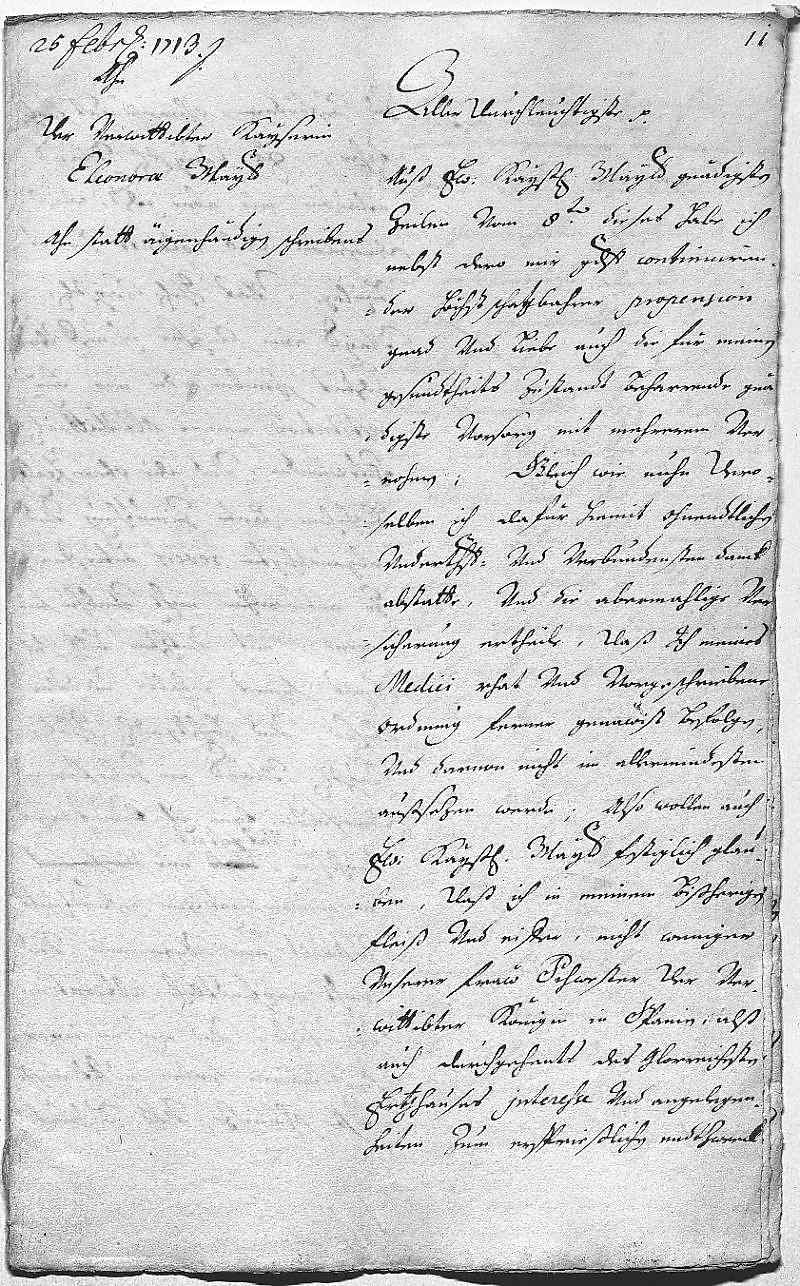 11
25 Febr: 1713.
Ahn
Der Verwittibter Kayserin
Eleonorae Mayst
Ahn statt aigenhändigen schreibens
Aller Durchleuchtigste p.
Auß Ew: Kayßl: Mayst gnädigste
Zeilen Vom 8ten dieses habe ich
nebst dero mir gdst continuiren-
der höchst schatzbahrer propension
gnad Und Liebe auch die für meine
gesundtheits Zustandt beharrende gnä-
digste Vorsorg mit mehrerem Ver-
nohmen; Gleich wie nuhn Dero-
selben ich dafür hiemit ohnendtlichen
Underthst- Und Verbundensten danck
abstatte, Und die abermahlige Ver-
sicherung ertheile, daß Ich meines
Medici rhat Und Vorgeschriebene
ordnung ferner genawist befolgen,
Und darvon nicht im allermindesten
außsetzen werde; Also wollen auch
Ew: Kayßl. Mayst festiglich glau-
ben, daß ich in meinem bißherigen
fleiß Und eiffer, nicht weniger
Unserer fraw Schwester der Ver-
wittibter Königin in Spanien, alß
auch durchgehents des Glorreichsten
Ertzhauses Interesse Und angelegen-
heiten zum ersprießlichen endtzweck